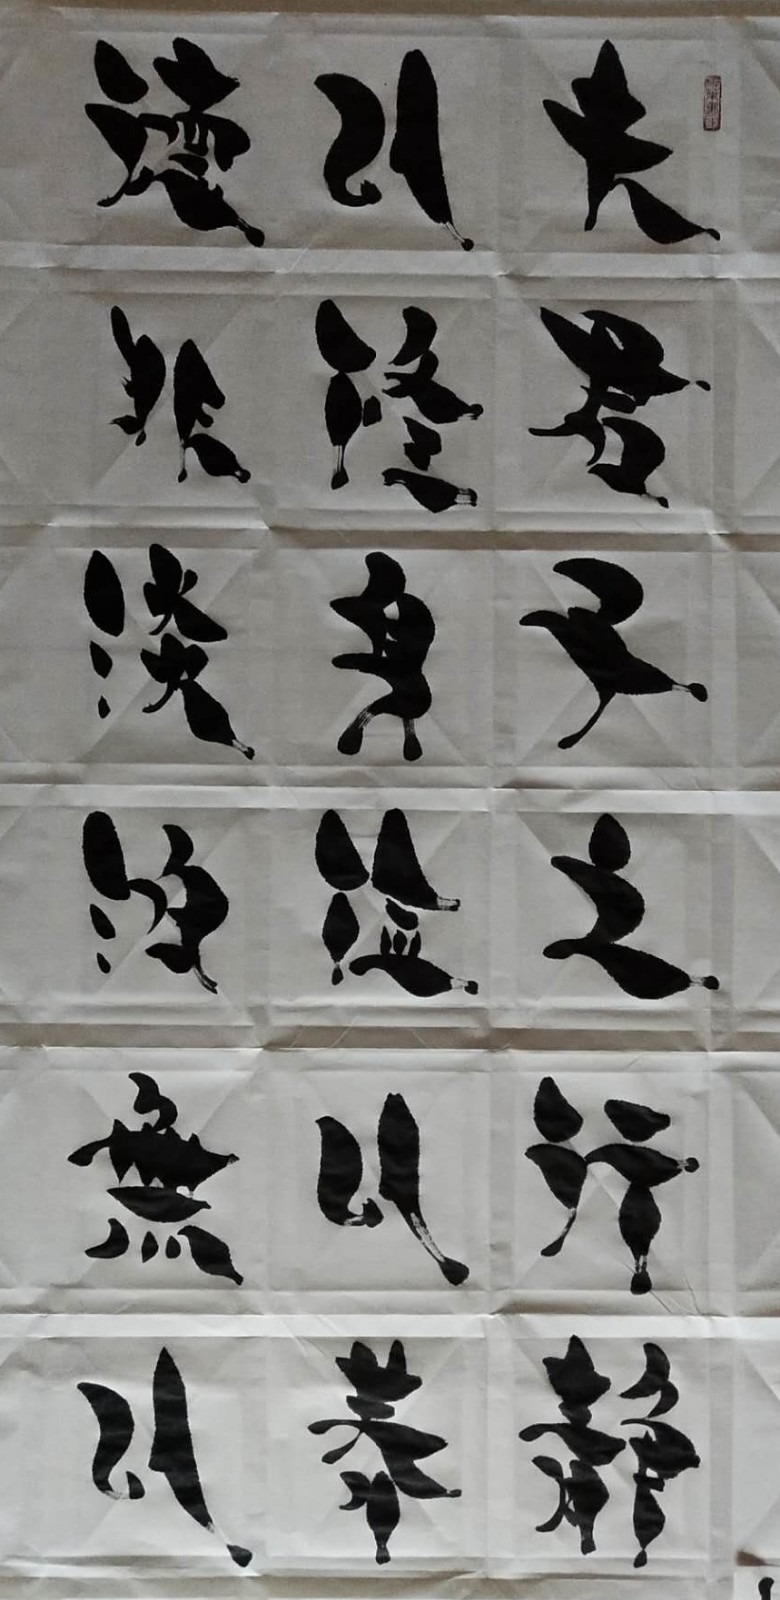 夫君子之行靜
以修身儉以養
德非淡泊無以